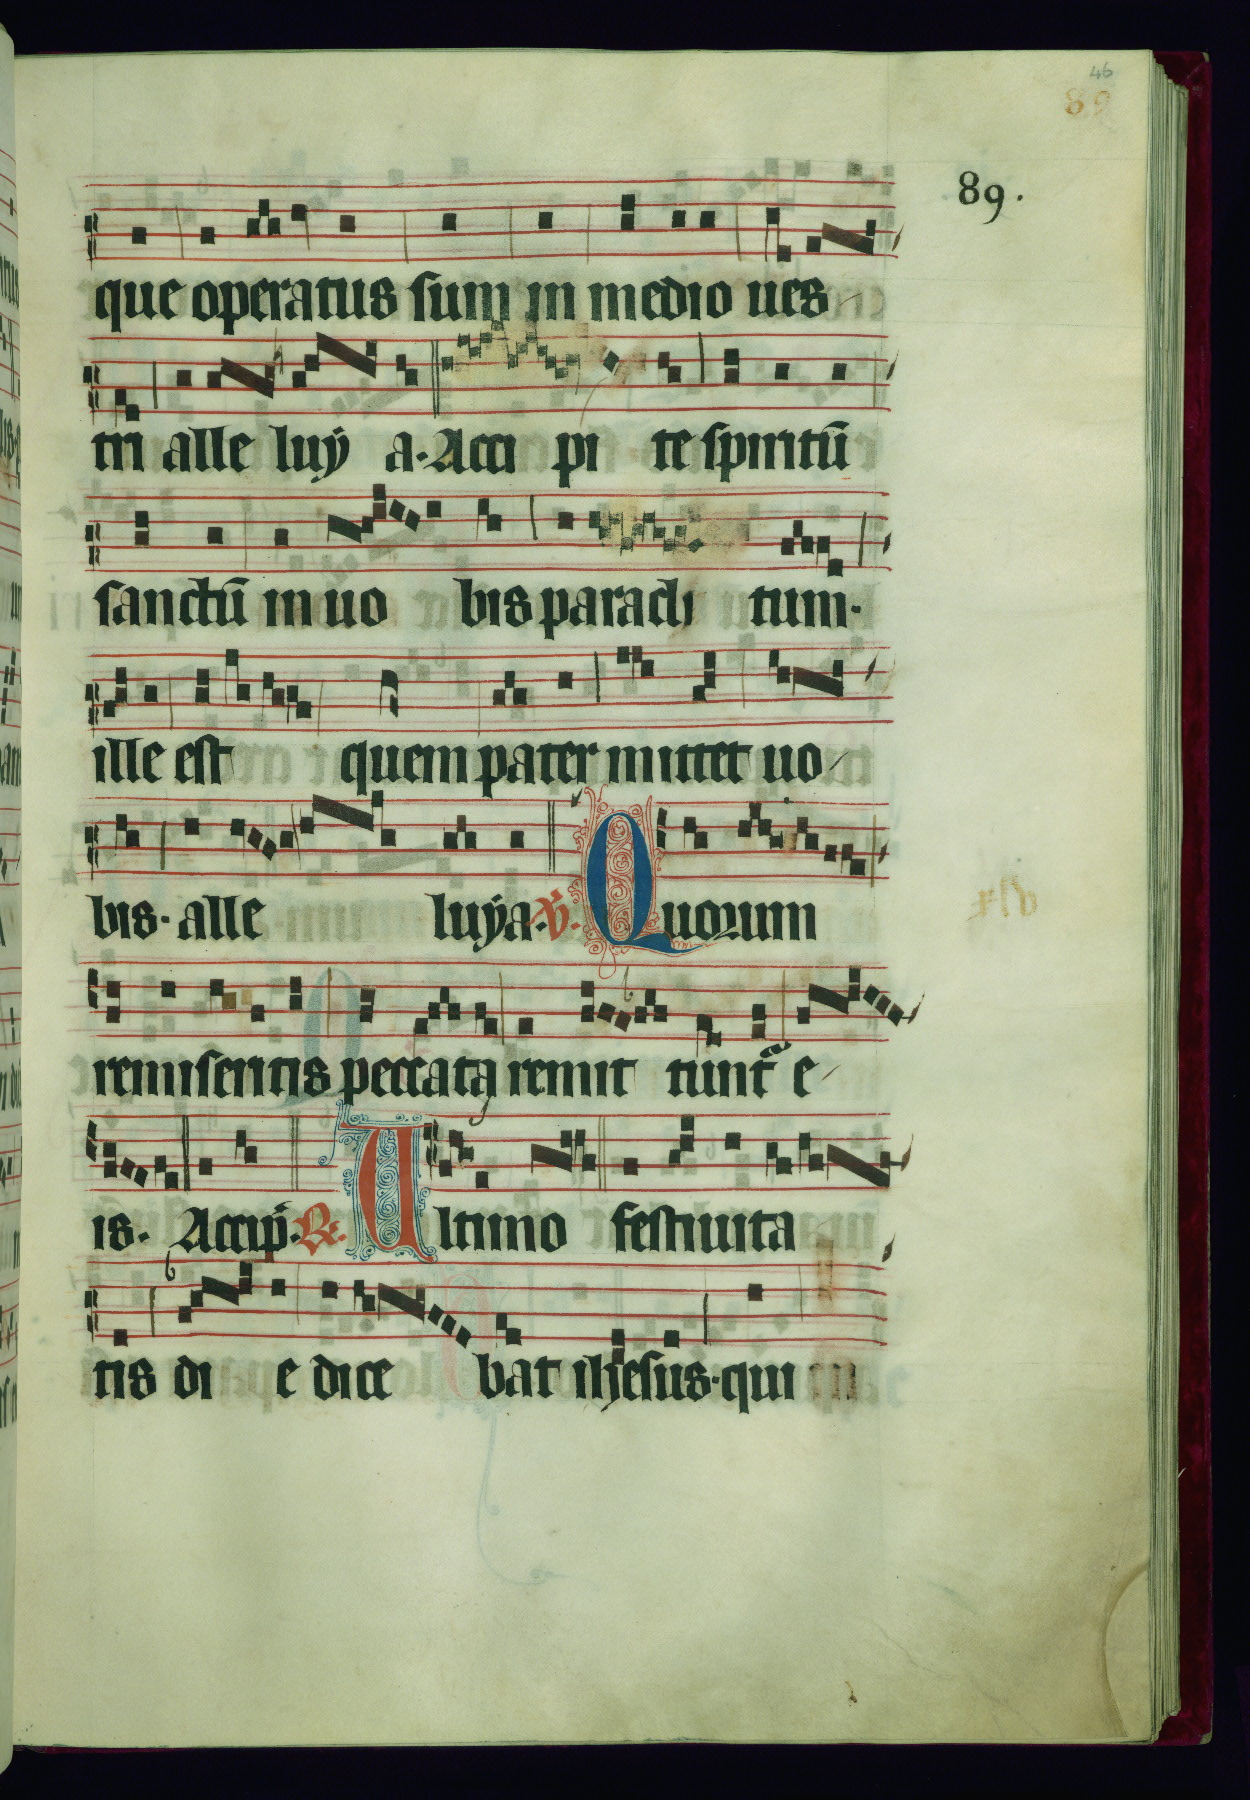 46
89
89.
que operatus sum in medio ues
tri alle luÿ a. Acci pi te spiritū
sanctū in uo bis paracli tum.
ille est quem pater mittet uo
bis. alle luÿa. ℣. Quorum
remiseritis peccata remit tunt᷑ e
is. Accip̄. ℟. Ultimo festiuita
tis di e dice bat ihesus. qui in